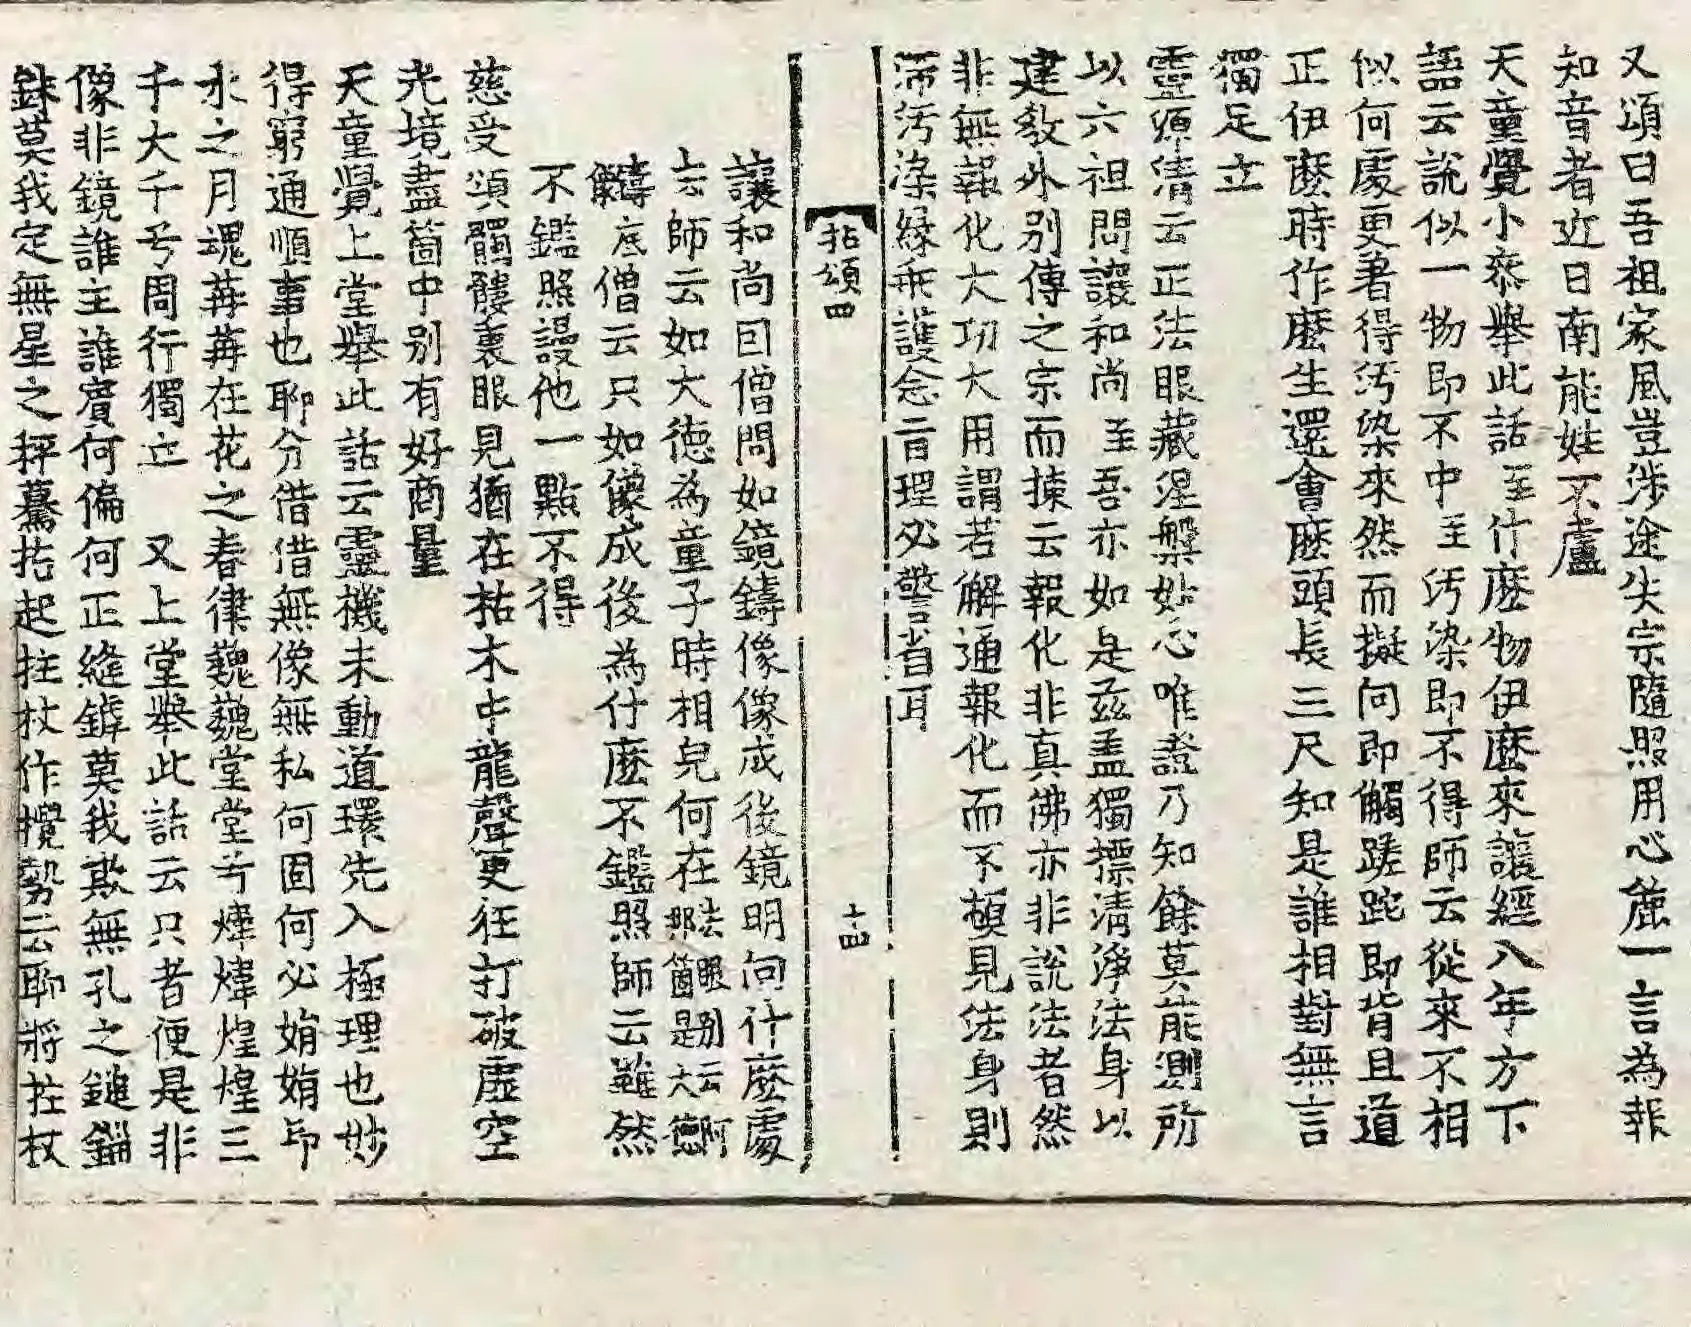 又頌曰吾祖家風豈涉途失宗隨照用心麁一言為報
知音者近日南能姓不盧
天童覺小叅擧此話至什麽物伊麽來讓經八年方下
語云說似一物即不中至汚染即不得師云從來不相
似何處更著得汚染來然而擬向即觸蹉跎即背且道
正伊麽時作麽生還會麽頭長三尺知是誰相對無言
獨足立
靈源淸云正法眼藏涅槃妙心唯證乃知餘莫能測所
以六祖問讓和尚至吾亦如是兹盖獨摽淸淨法身以
建敎外別傳之宗而揀云報化非真佛亦非說法者然
非無報化大功大用謂若解通報化而不頓見法身則
滯汚染緣乖護念旨理必警省耳
拈頌四
十四
讓和尚因僧問如鏡鑄像像成後鏡明向什麽處
去師云如大德為童子時相皃何在法眼別云阿那箇是大德
鑄底僧云只如像成後為什麽不鑑照師云雖然
不鑑照謾他一點不得
慈受頌髑髏裏眼見猶在枯木中龍聲更狂打破虛空
光境盡箇中別有好商量
天童覺上堂擧此話云靈機未動道環先入極理也妙
得窮通順事也聊分借借無像無私何固何必娟娟印
水之月魂苒苒在花之春律巍巍堂堂兮煒煒煌煌三
千大千兮周行獨立 又上堂擧此話云只者便是非
像非鏡誰主誰賓何偏何正縫罅莫我欺無孔之鎚錙
銖莫我定無星之秤驀拈起拄杖作攪勢云聊將拄杖